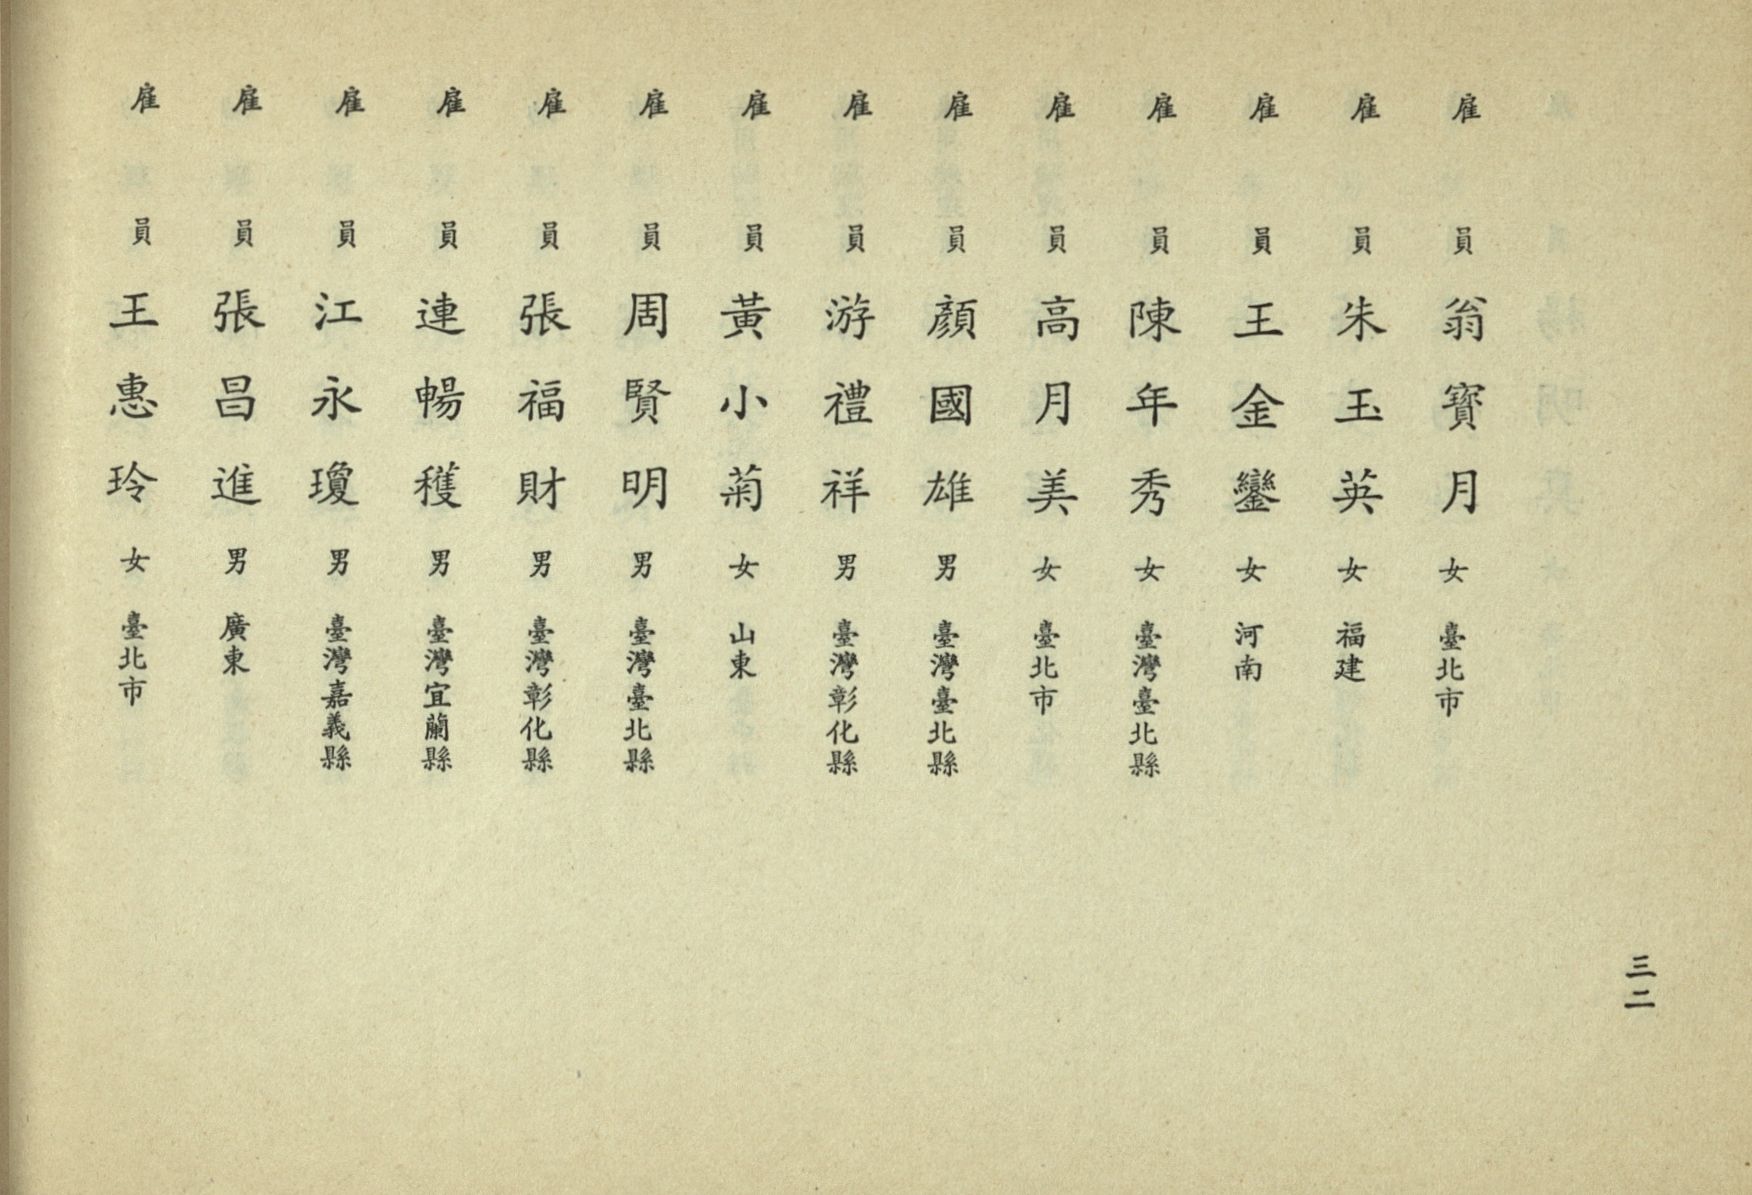 雇員翁寶月女臺北市
雇員朱玉英女福建
雇員王金鑾女河南
雇員陳年秀女臺灣臺北縣
雇員高月美女臺北市
雇員顏國雄男臺灣臺北縣
雇員游禮祥男臺灣彰化縣
雇員黃小菊女山東
雇員周賢明男臺灣臺北縣
雇員張福財男臺灣彰化縣
雇員連暢穫男臺灣宜蘭縣
雇員江永瓊男臺灣嘉義縣
雇員張昌進男廣東
雇員王惠玲女臺北市
三二